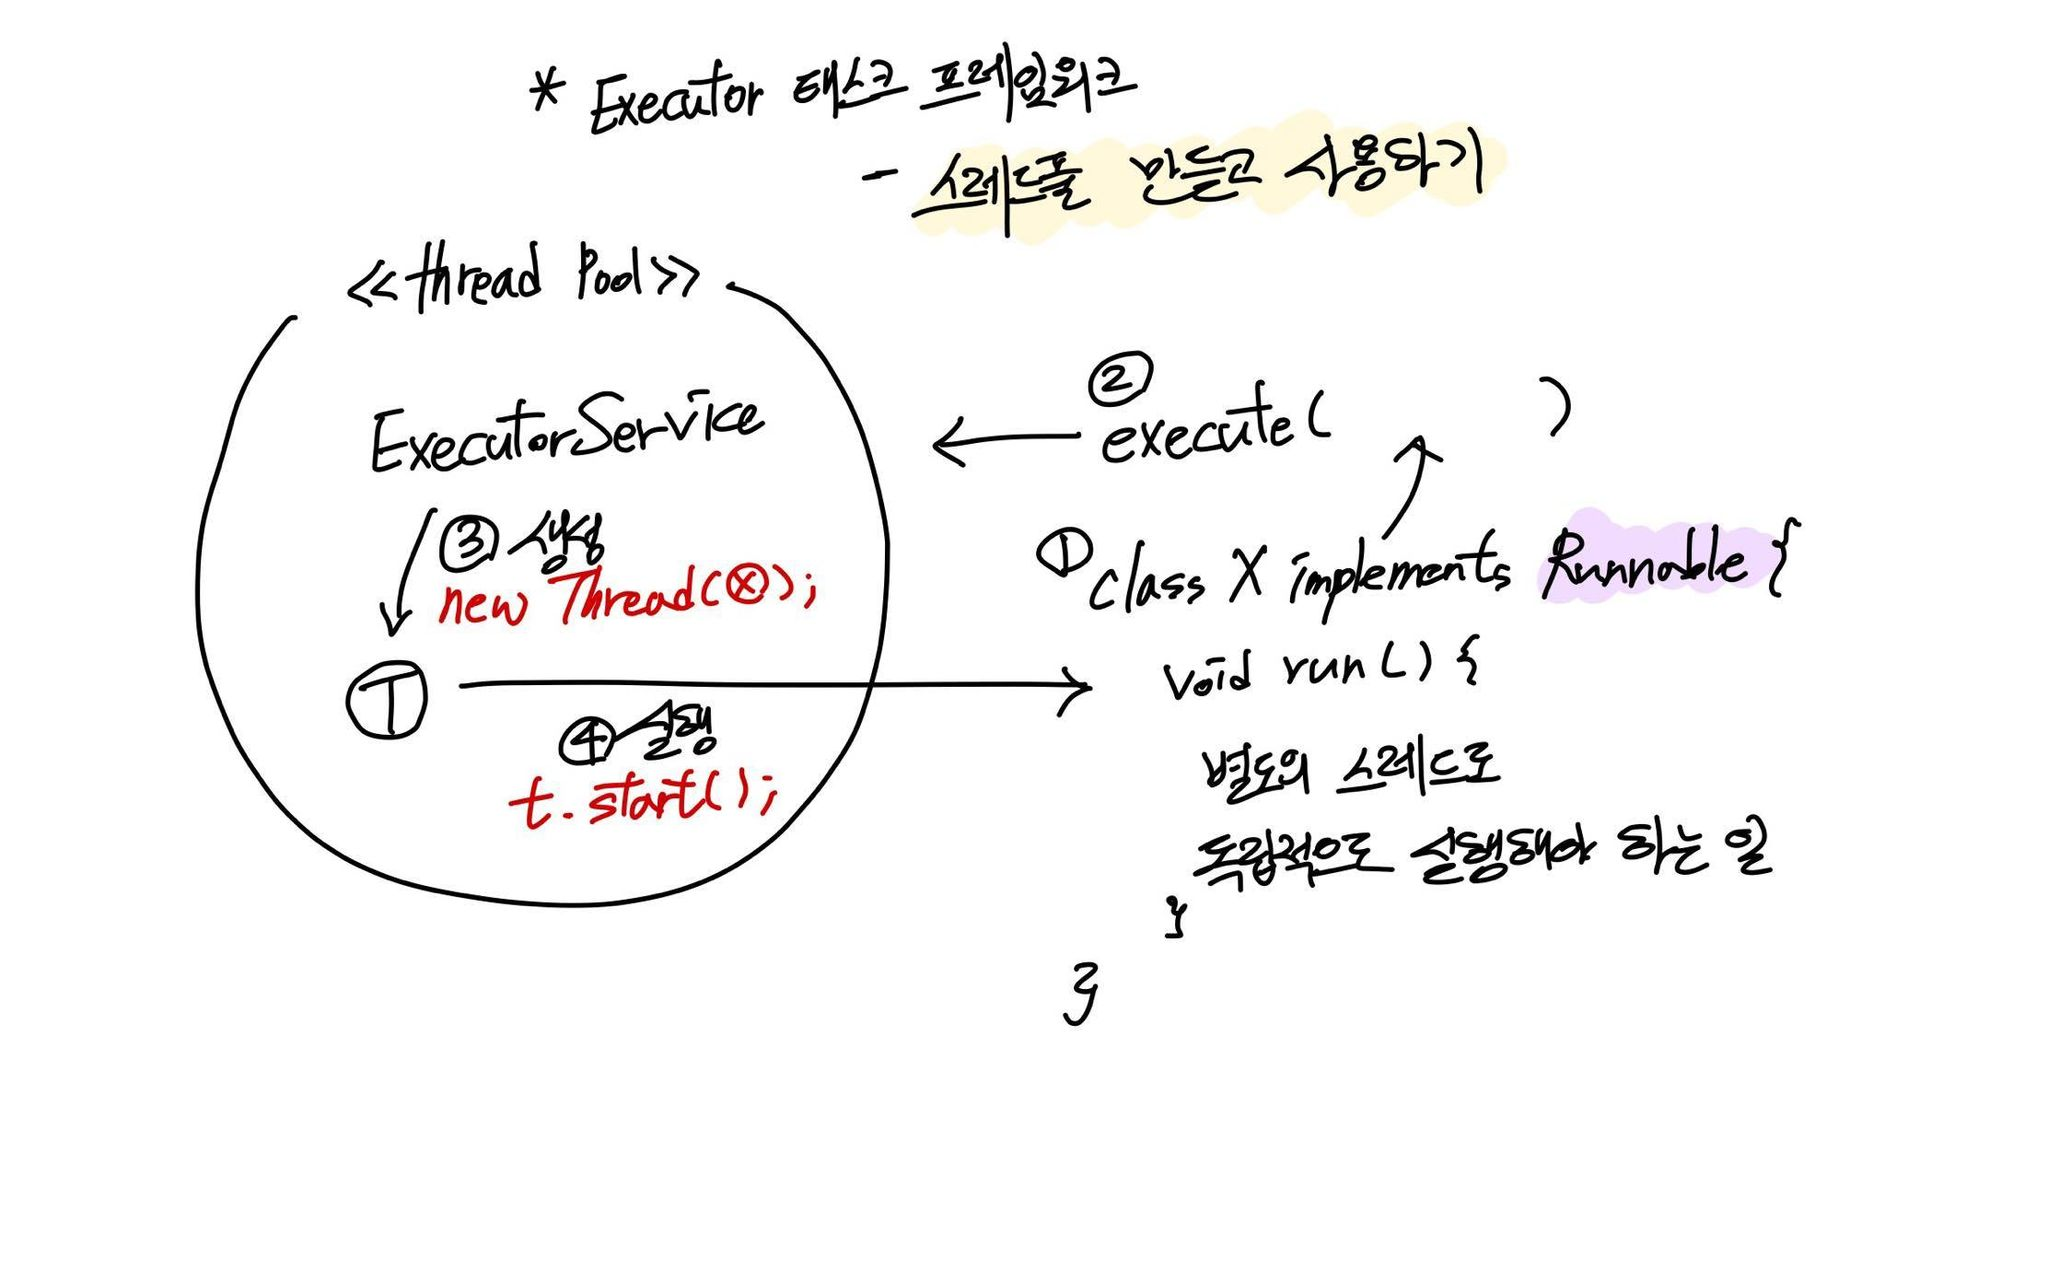 * Executor 태스크 프레임워크
- 스레드풀 만들고 사용하기
<<thread Pool>>
ExecutorService
③ 생성
new Thread(ⓧ);
Ⓣ
④ 실행
t.start();
②
execute( )
① class X implements Runnable {
void run() {
별도의 스레드로
독립적으로 실행해야 하는 일
}
}